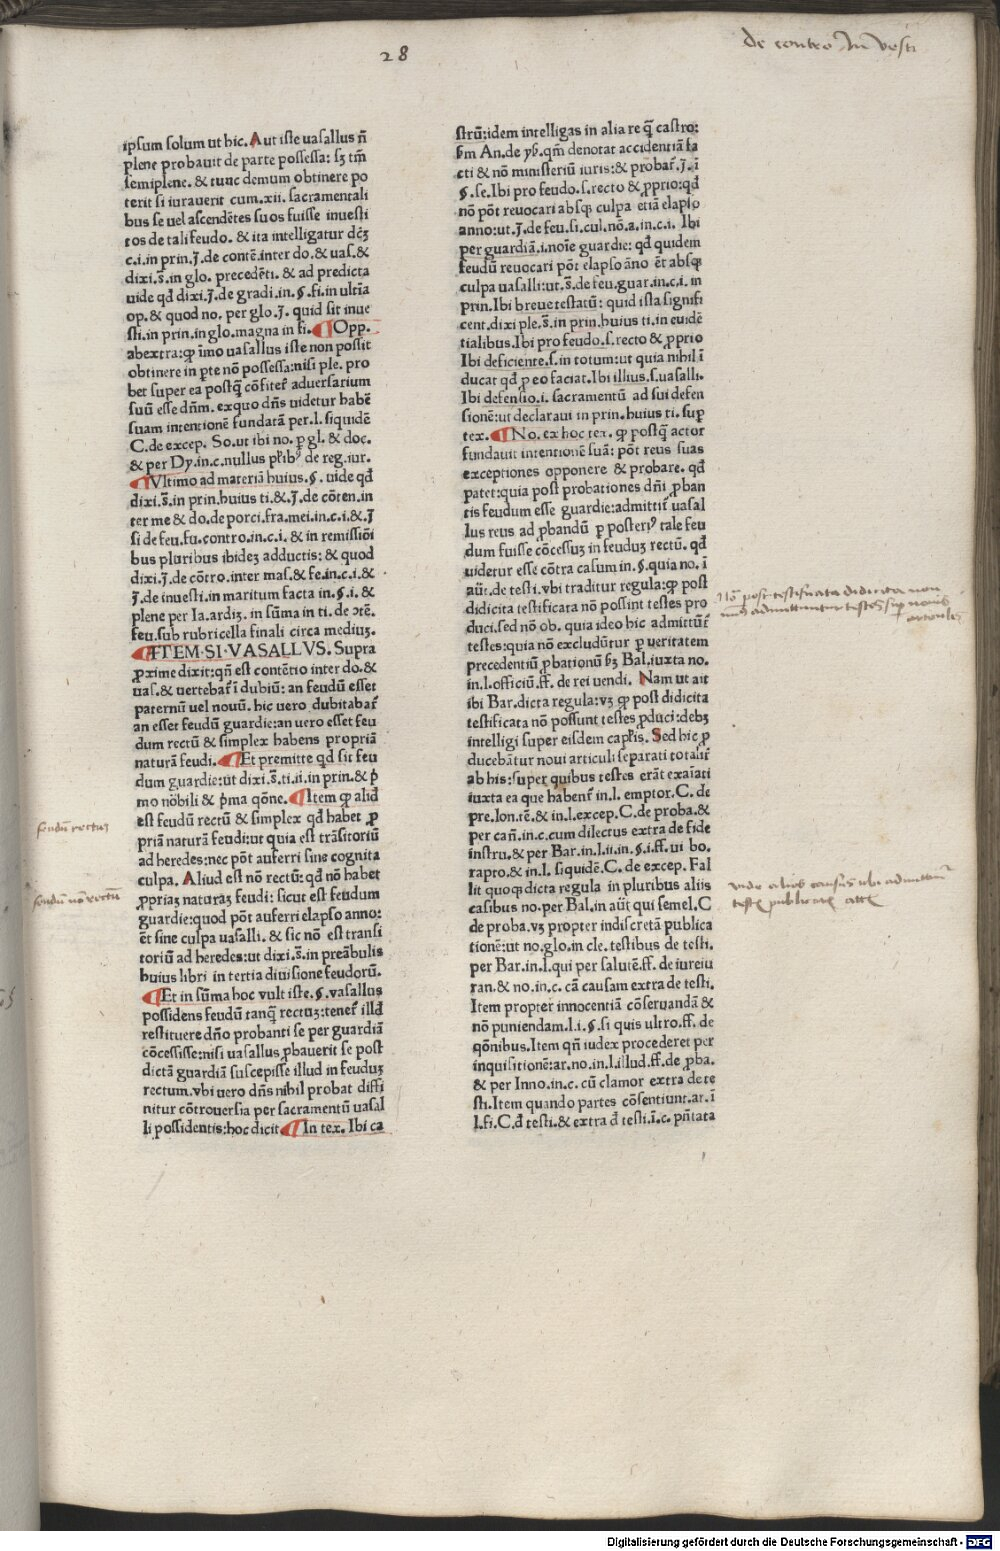 28
de contro In vesti
ipsum solum ut hic. Aut iste uasallus n̄
plene probauit de parte possessa: sꝫ tm̄
semiplene. & tunc demum obtinere po
terit si iurauerit cum. xii. sacramentali
bus se uel ascendētes suos fuisse inuesti
tos de tali feudo. & ita intelligatur dc̄ꝫ
c.i. in prin. J. de contē. inter do. & uas. &
dixi. s̄. in glo. precedēti. & ad predicta
uide qd̄ dixi. J. de gradi. in. §. fi. in ultīa
op. & quod no. per glo. J. quid sit inue
sti. in prin. in glo. magna in fi. ¶ Opp.
abextra: ꝙ īmo uasallus iste non possit
obtinere in ꝑte nō possessa: nisi ple. pro
bet super ea postq̄ cōfitet̄ aduersarium
suū esse dn̄m. exquo dn̄s uidetur habē
suam intentionē fundatā per. l. siquidē
C. de excep. So. ut ibi no. ꝑ gl. & doc.
& per Dy. in. c. nullus pl̄ribꝰ de reg. iur.
¶ Vltimo ad materiā huius. §. uide qd̄
dixi. s̄. in prin. huius ti. & J. de cōten. in
ter me & do. de porci. fra. mei. in. c. i. & J
si de feu. fu. contro. in. c. i. & in remissiōi
bus pluribus ibideꝫ adductis: & quod
dixi. J. de cōtro. inter mas. & fe. in. c. i. &
J. de inuesti. in maritum facta in. §. i. &
plene per Ia. ardiꝫ. in sūma in ti. de ↄtē.
feu. sub rubricella finali circa mediuꝫ.
¶ ITEM·SI·VASALLVS. Supra
ꝓxime dixit: qn̄ est contētio inter do. &
uas. & uertebat̄ ī dubiū: an feudū esset
paternū uel nouū. hic uero dubitabat̄
an esset feudū guardie: an uero esset feu
dum rectū & simplex habens propriā
naturā feudi. ¶ Et premitte qd̄ sit feu
dum guardie: ut dixi. s̄. ti. ii. in prin. & p̄
mo nōbili & p̄ma qōne. ¶ Item ꝙ aliđ
est feudū rectū & simplex qd̄ habet ꝓ
priā naturā feudi: ut quia est trāsitoriū
ad heredes: nec pōt auferri sine cognita
culpa. Aliud est nō rectū: qd̄ nō habet
ꝓpriaꝫ naturaꝫ feudi: sicut est feudum
guardie: quod pōt auferri elapso anno:
ēt sine culpa uasalli. & sic nō est transi
toriū ad heredes: ut dixi. s̄. in preābulis
huius libri in tertia diuisione feudorū.
¶ Et in sūma hoc vult iste. §. vasallus
possidens feudū tanq̄ rectuꝫ: tenet̄ illđ
restituere dn̄o probanti se per guardiā
cōcessisse: nisi uasallus ꝓbauerit se post
dictā guardiā suscepisse illud in feuduꝫ
rectum. vbi uero dn̄s nihil probat diffi
nitur cōtrouersia per sacramentū uasal
li possidentis: hoc dicit ¶ In tex. Ibi ca
feudū rectuꝫ
feudū nō rectum
strū: idem intelligas in alia re q̄ castro:
ẜm An. de yẜ. qm̄ denotat accidentiā fa
cti & nō ministeriū iuris: & probat̄. J. ī
§. se. Ibi pro feudo. s. recto & ꝓprio: qd̄
nō pōt reuocari absqꝫ culpa etiā elapso
anno: ut. J. de feu. si. cul. nō. a. in. c. i. Ibi
per guardiā. i. noīe guardie: qd̄ quidem
feudū reuocari pōt elapso āno ēt absqꝫ
culpa uasalli: ut. s̄. de feu. guar. in. c. i. in
prin. Ibi breue testatū: quid ista signifi
cent. dixi ple. s̄. in prin. huius ti. in euidē
tialibus. Ibi pro feudo. s. recto & ꝓprio
Ibi deficiente. s. in totum: ut quia nihil ī
ducat qd̄ ꝓ eo faciat. Ibi illius. s. uasalli.
Ibi defensio. i. sacramentū ad sui defen
sionē: ut declaraui in prin. huius ti. suꝑ
tex. ¶ No. ex hoc tex. ꝙ postq̄ actor
fundauit intentionē suā: pōt reus suas
exceptiones opponere & probare. qd̄
patet: quia post probationes dn̄i ꝓban
tis feudum esse guardie: admittit̄ uasal
lus reus ad ꝓbandū ꝑ posteriꝰ tale feu
dum fuisse cōcessuꝫ in feuduꝫ rectū. qd̄
uidetur esse cōtra casum in. §. quia no. ī
aūt. de testi. vbi traditur regula: ꝙ post
didicita testificata nō possint testes pro
duci. sed nō ob. quia ideo hic admittūt̄
testes: quia nō excludūtur ꝑ ueritatem
precedentiū ꝓbationū ẜꝫ Bal. iuxta no.
in. l. officiū. ff. de rei uendi. Nam ut ait
ibi Bar. dicta regula: vꝫ ꝙ post didicita
testificata nō possunt testes ꝓduci: debꝫ
intelligi super eisdem capl̄is. Sed hic ꝓ
ducebātur noui articuli separati totalit̄
ab his: super quibus testes erāt exaīati
iuxta ea que habent̄ in. l. emptor. C. de
pre. lon. tē. & in. l. excep. C. de proba. &
per cañ. in. c. cum dilectus extra de fide
instru. & per Bar. in. l. ii. in. §. i. ff. ui bo.
rapto. & in. l. siquidē. C. de excep. Fal
lit quoqꝫ dicta regula in pluribus aliis
casibus no. per Bal. in aūt̄ qui semel. C
de proba. vꝫ propter indiscretā publica
tionē: ut no. glo. in cle. testibus de testi.
per Bar. in. l. qui per salutē. ff. de iureiu
ran. & no. in. c. cā causam extra de testi.
Item propter innocentiā cōseruandā &
nō puniendam. l. i. §. si quis ultro. ff. de
qōnibus. Item qn̄ iudex procederet per
inquisitionē: ar. no. in. l. illud. ff. de ꝓba.
& per Inno. in. c. cū clamor extra de te
sti. Item quando partes cōsentiunt. ar. ī
l. fi. C. đ testi. & extra đ testi. ī. c. pn̄tata
post testificata didicita non
admittuntur testes sup novis
articulis
vide alios casus ubi admittunt̄
testes
Digitalisierung gefördert durch die Deutsche Forschungsgemeinschaft - DFG